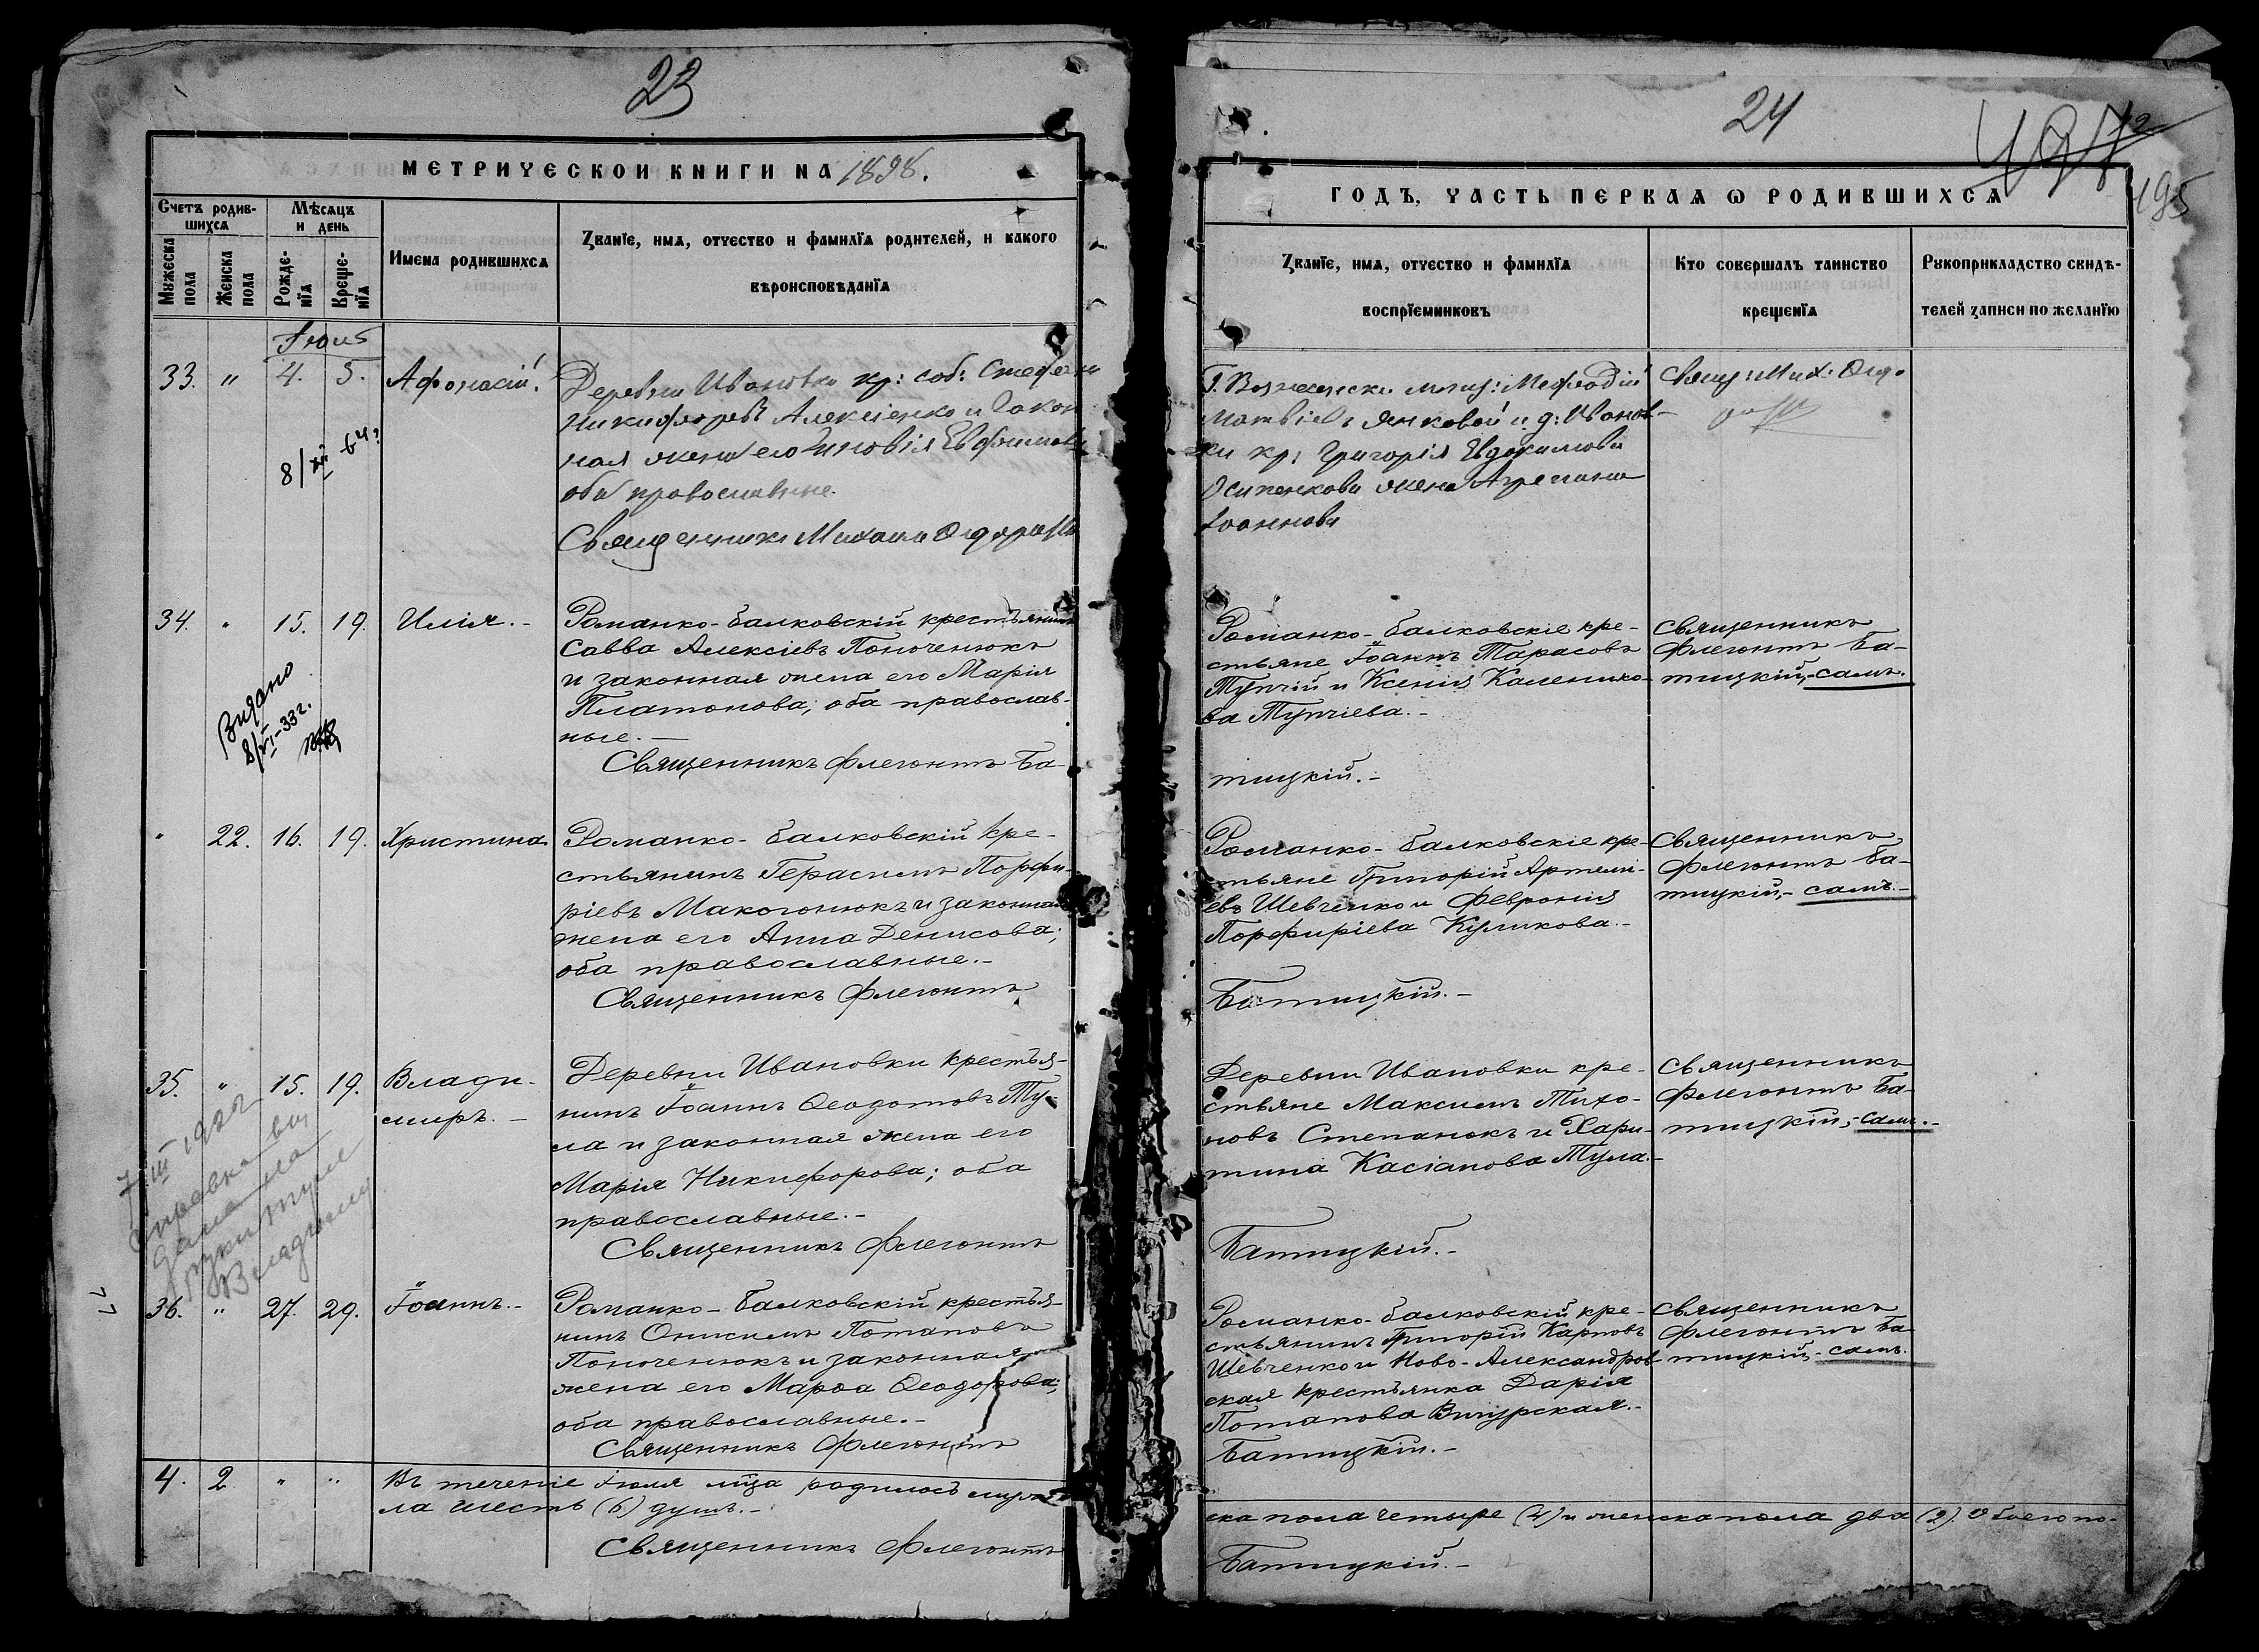 23
МЕТРИЧЕСКОЙ КНИГИ НА 1898.
Счетъ родив-
шихся
Мѣсяцъ
и день
Мужеска
пола
Женска
пола
Рожде-
нїя
Креще-
нїя
Имена родившихся
Званїе, имя, отчество и фамилїя родителей, и какого
вѣроисповѣданїя
33. " 4. 5. Афонасій.
Деревни Ивановки кр: соб: Стефанъ
Никифоровъ Алексіенко и Закон
ная жена его Зиновія Евфимова
оба православные.
Священникъ Михаилъ
34. " 15. 19. Илія. -
Романко-балковскій крестьянинъ
Савва Алексіевъ Поноченюкъ
и законная жена его Марія
Платонова; оба православ-
ные. -
Священникъ Флегонтъ Ба-
Видано
8/VI-33г.
" 22. 16. 19. Христина
Романко-балковскій кре-
стьянинъ Герасимъ Порфи-
ріевъ Макогонюкъ и законная
жена его Анна Денисова;
оба православные. -
Священникъ Флегонтъ
35. " 15. 19. Влади-
миръ. -
Деревни Ивановки крестья-
нинъ Іоаннъ Ѳеодотовъ Ту-
ла и законная жена его
Марія Никифорова; оба
православные. -
Священникъ Флегонтъ
7/III 1922
справка
дана на
руки Тули
Владимир
36. " 27. 29. Іоаннъ. -
Романко-балковскій крестья-
нинъ Онисимъ Потаповъ
Поноченюкъ и законная
жена его Марѳа Ѳеодорова;
оба православные. -
Священникъ Флегонтъ
4. 2 " " Въ теченіе Іюля мѣсяца родилось муже
ла шесть (6) душъ. -
Священникъ Флегонтъ
24
497
495
ГОДЪ, ЧАСТЬ ПЕРВАЯ Ѡ РОДИВШИХСЯ
Званїе, имя, отчество и фамилїя
воспрїемниковъ
Кто совершалъ таинство
крещенїя
Рукоприкладство свидѣ-
телей записи по желанїю
Г. Вознесенска мѣщ: Мефодій
Матвіевъ Янковой и д: Иванов-
ки кр: Григорія Евдокимова
Осипенкова жена Агрепина
Іоаннова
Свящ: Мих:
Романко-балковскіе кре-
стьяне Іоаннъ Тарасовъ
Тупчій и Ксенія Каленико-
ва Тупчіева. -
тицкій. -
Священникъ
Флегонтъ Ба-
тицкій, - самъ.
Романко-балковскіе кре-
стьяне Григорій Артеми-
евъ Шевченко и Февронія
Порфиріева Куликова. -
Батицкій. -
Священникъ
Флегонтъ Ба-
тицкій, - самъ. -
Деревни Ивановки кре-
стьяне Максимъ Тихо-
новъ Степанюкъ и Хари-
тина Касіанова Тула. -
Батицкій. -
Священникъ
Флегонтъ Ба-
тицкій, - самъ. -
Романко-балковскій кре-
стьянинъ Григорій Карповъ
Шевченко и Ново-Александров-
ская крестьянка Дарія
Потапова Вигурская. -
Батицкій. -
Священникъ
Флегонтъ Ба-
тицкій, - самъ.
ска пола четыре (4) и женска пола два (2). Обоего по-
Батицкій. -